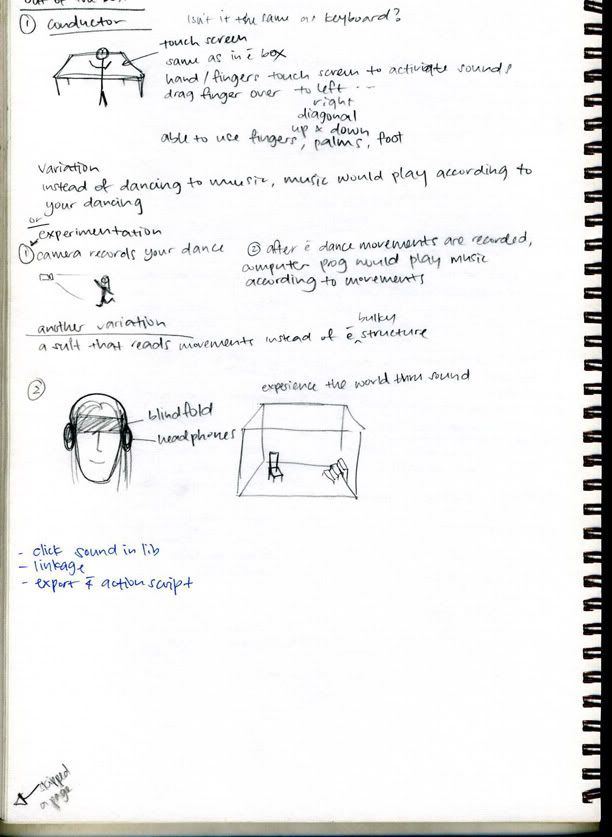 ① conductor
Isn't it the same as keyboard?
touch screen
same as in ē box
hand/fingers touch screen to activate sounds
drag finger over to left ...
right
diagonal
up & down
able to use fingers, palms, foot
variation
instead of dancing to music, music would play according to
your dancing
or
experimentation
① camera records your dance
② after ē dance movements are recorded,
computer prog would play music
according to movements
another variation
bulky
a suit that reads movements instead of ē structure
②
experience the world thru sound
blindfold
headphones
- click sound in lib
- linkage
- export 4 action script
skipped
a page